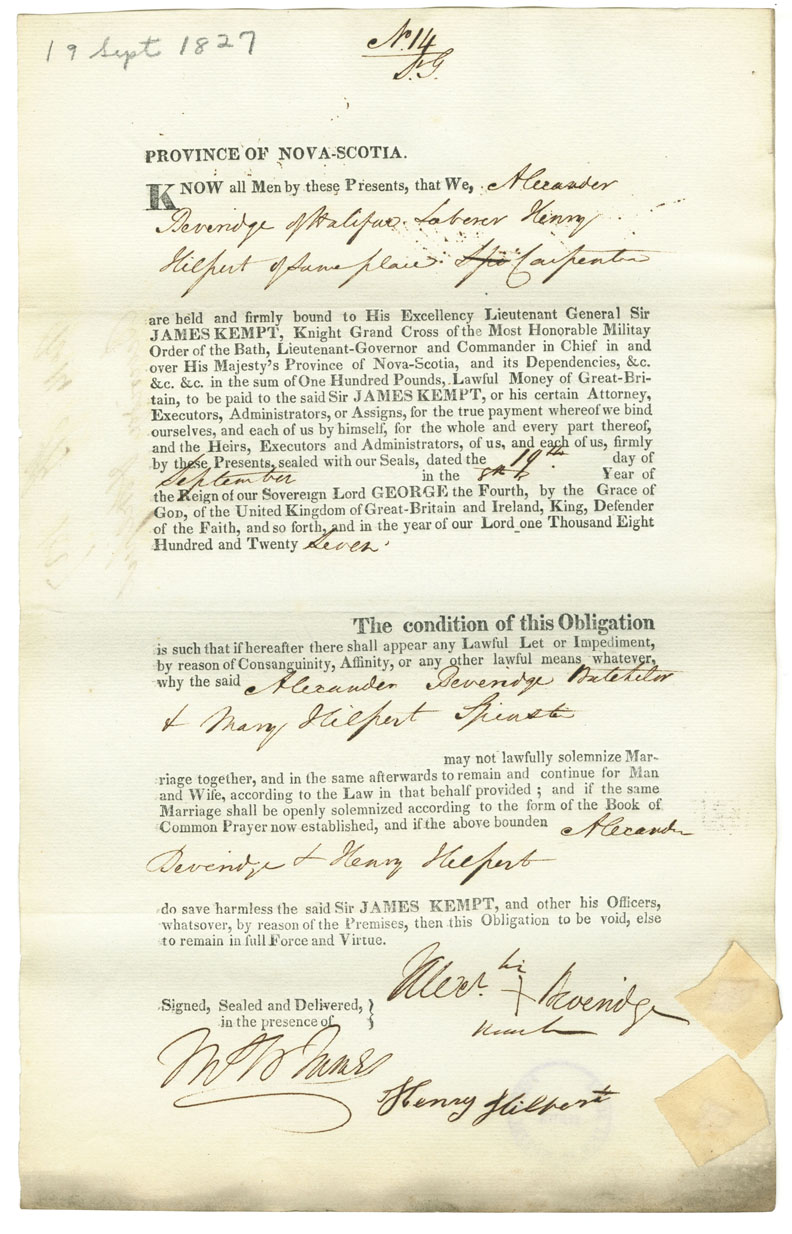 19 Sept 1827
No. 14
PROVINCE OF NOVA-SCOTIA.
KNOW all Men by these Presents, that We, Alexander
Beveridge of Halifax Laberer Henry
Hilpert of same place Carpenter
are held and firmly bound to His Excellency Lieutenant General Sir
JAMES KEMPT, Knight Grand Cross of the Most Honorable Militay
Order of the Bath, Lieutenant-Governor and Commander in Chief in and
over His Majesty's Province of Nova-Scotia, and its Dependencies, &c.
&c. &c. in the sum of One Hundred Pounds, Lawful Money of Great-Bri-
tain, to be paid to the said Sir JAMES KEMPT, or his certain Attorney,
Executors, Administrators, or Assigns, for the true payment whereof we bind
ourselves, and each of us by himself, for the whole and every part thereof,
and the Heirs, Executors and Administrators, of us, and each of us, firmly
by these Presents, sealed with our Seals, dated the 19th day of
September in the 8th Year of
the Reign of our Sovereign Lord GEORGE the Fourth, by the Grace of
GOD, of the United Kingdom of Great-Britain and Ireland, King, Defender
of the Faith, and so forth, and in the year of our Lord one Thousand Eight
Hundred and Twenty Seven
The condition of this Obligation
is such that if hereafter there shall appear any Lawful Let or Impediment,
by reason of Consanguinity, Affinity, or any other lawful means whatever,
why the said Alexander Beveridge Batchelor
& Mary Hilpert Spinster
may not lawfully solemnize Mar-
riage together, and in the same afterwards to remain and continue for Man
and Wife, according to the Law in that behalf provided ; and if the same
Marriage shall be openly solemnized according to the form of the Book of
Common Prayer now established, and if the above bounden Alexander
Beveridge & Henry Hilpert
do save harmless the said Sir JAMES KEMPT, and other his Officers,
whatsover, by reason of the Premises, then this Obligation to be void, else
to remain in full Force and Virtue.
Signed, Sealed and Delivered, }
in the presence of }
his
Alexr. + Beveridge
mark
Henry Hilpert